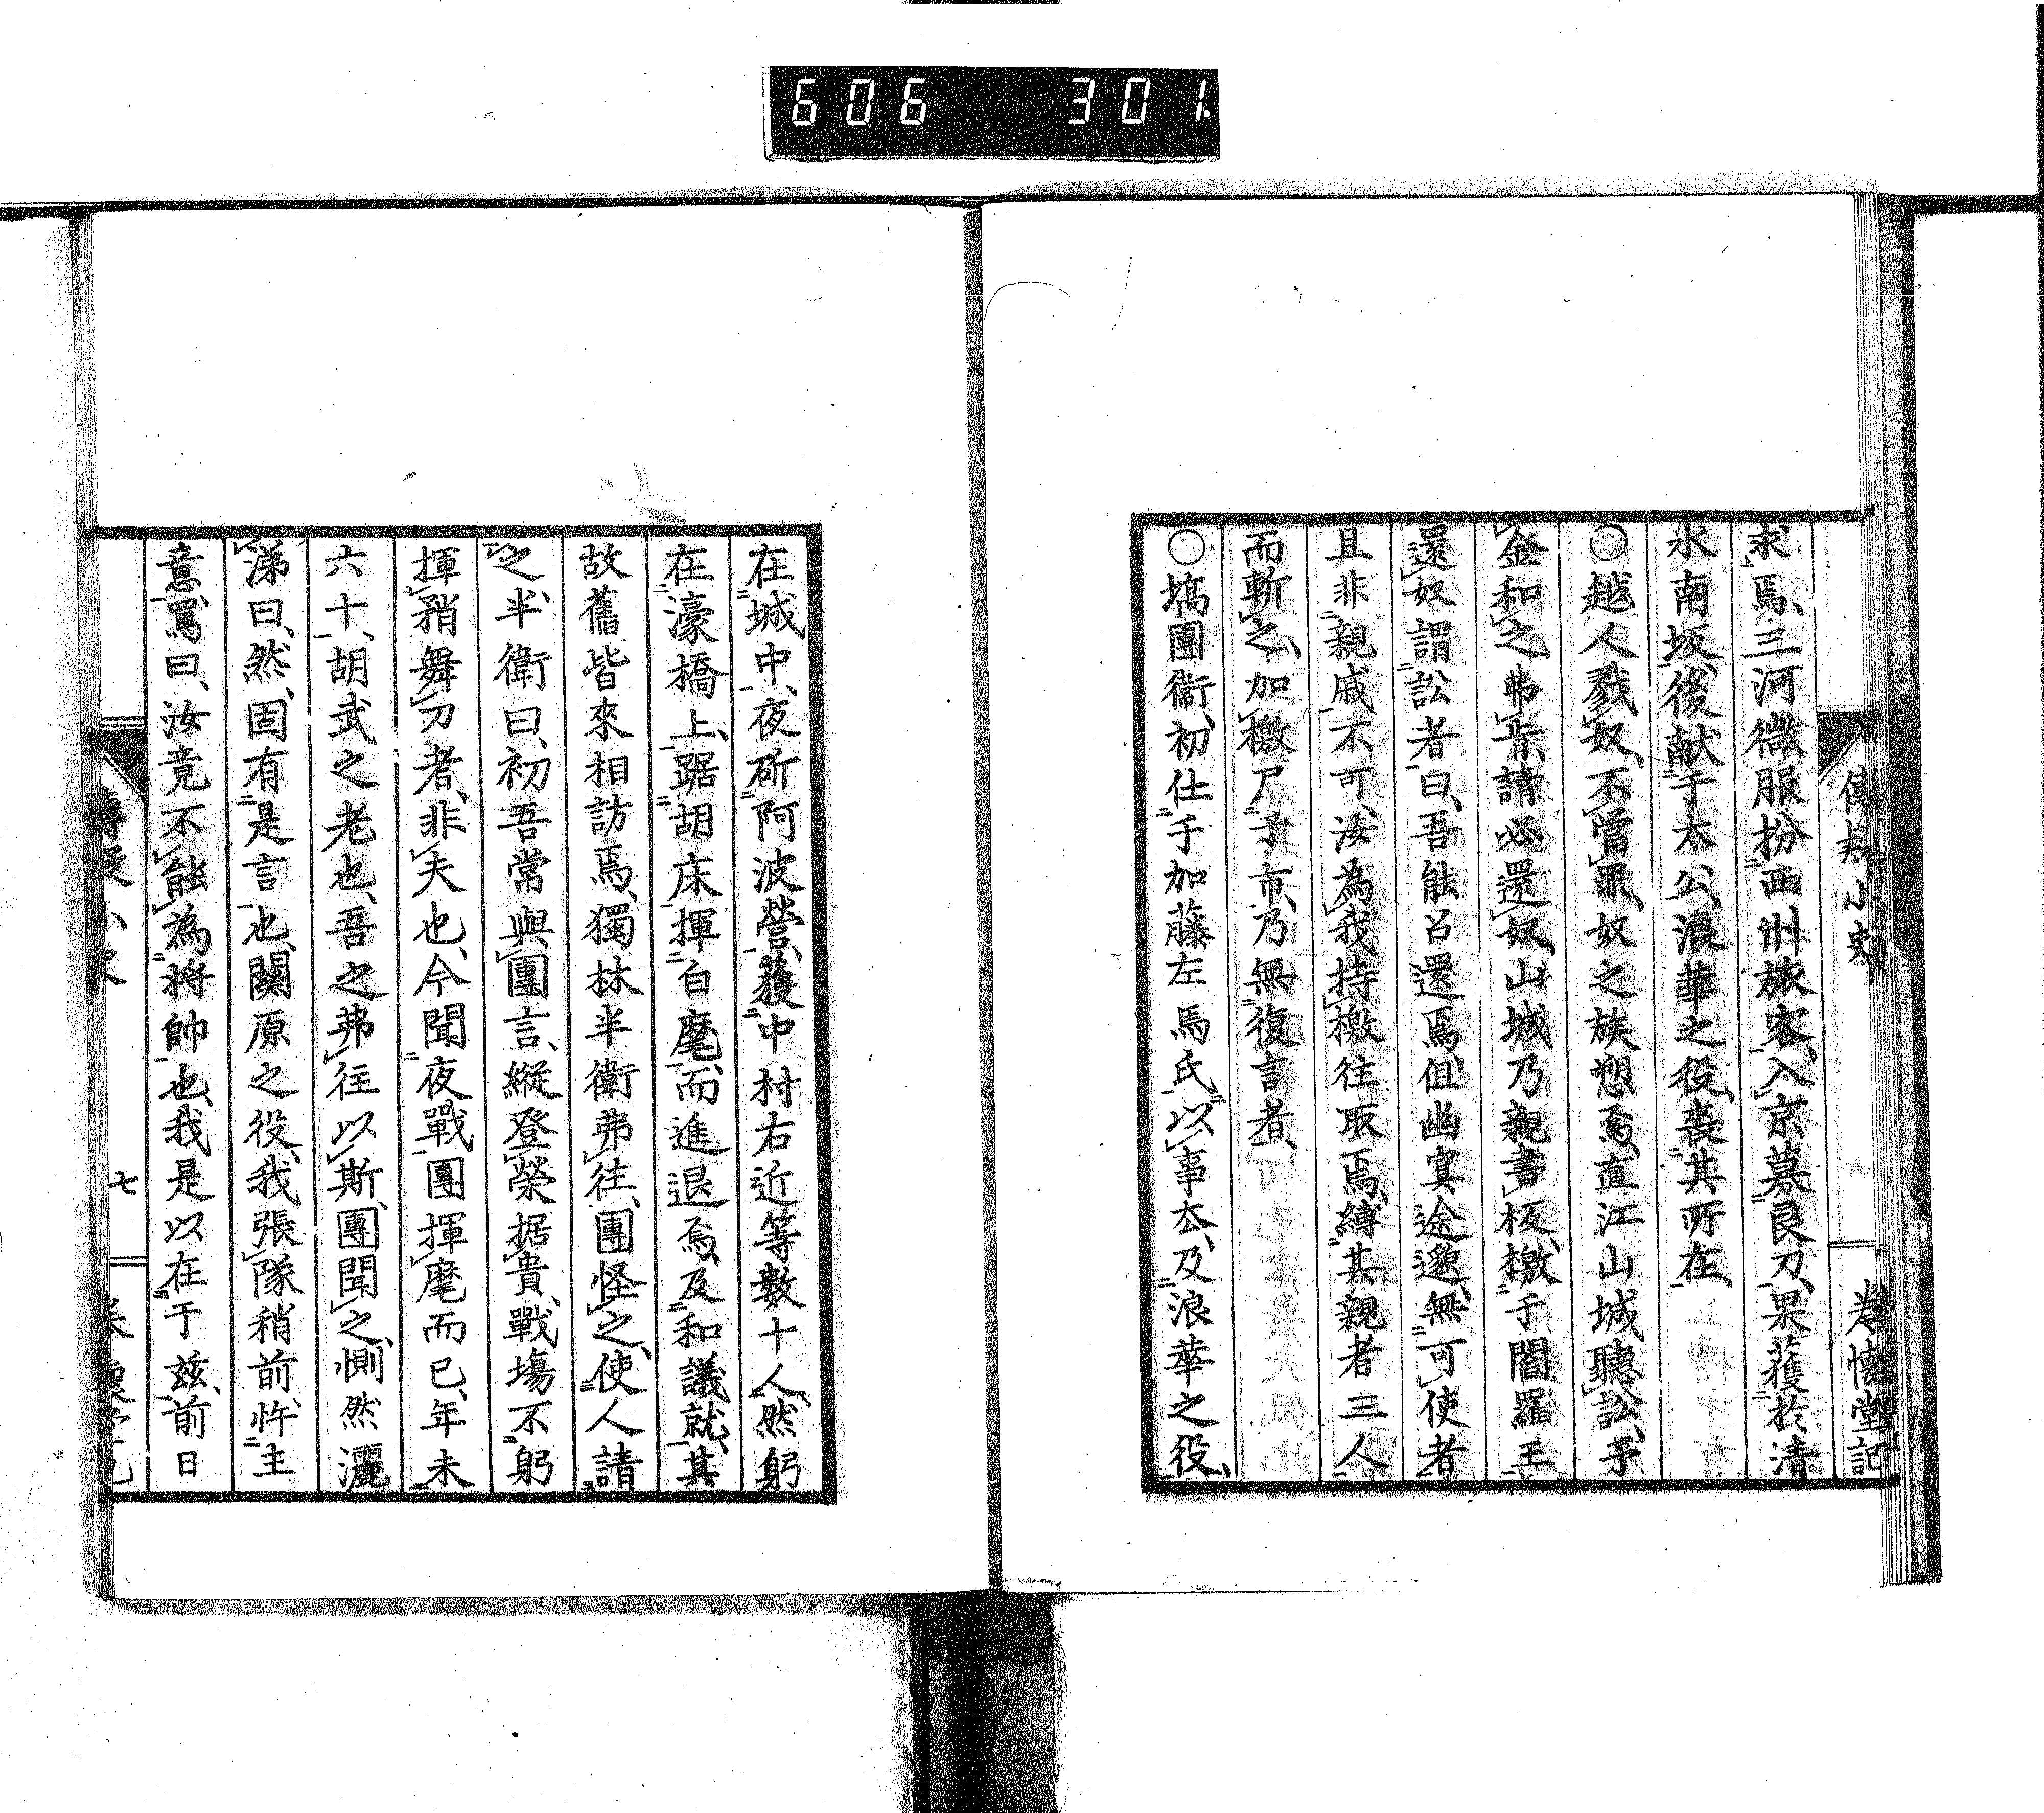 606 301.
傳疑小史 卷 懷堂記
求焉、三河微服扮西州旅客、入京募良刀、果獲於清
水南坂、後献于太公、浪華之役、喪其所在、
○越人戮奴、不當罪、奴之族愬焉、直江山城聽訟、予
金和之、弗肯、請必還奴、山城乃親書板檄于閻羅王
還奴、謂訟者曰、吾能召還焉、但幽冥途邈、無可使者
且非親戚不可、汝為我持檄往取焉、縛其親者三人
而斬之、加檄尸于市、乃無復言者、
○塙團衞、初仕于加藤左馬氏、以事厺、及浪華之役、
在城中、夜斫阿波營、獲中村右近等數十人、然躬
在濠橋上、踞胡床揮白麾、而進退焉、及和議就、其
故舊皆來相訪焉、獨林半衛弗往、團怪之、使人請
之、半衛曰、初吾常與團言、縱登榮据貴、戰場不躬
揮矟舞刀者、非夫也、今聞夜戰團揮麾而已、年未
六十、胡武之老也、吾之弗往以斯、團聞之、惻然灑
涕曰、然、固有是言也、關原之役、我張隊稍前、忤主
意、罵曰、汝竟不能為将帥也、我是以在于兹、前日
七